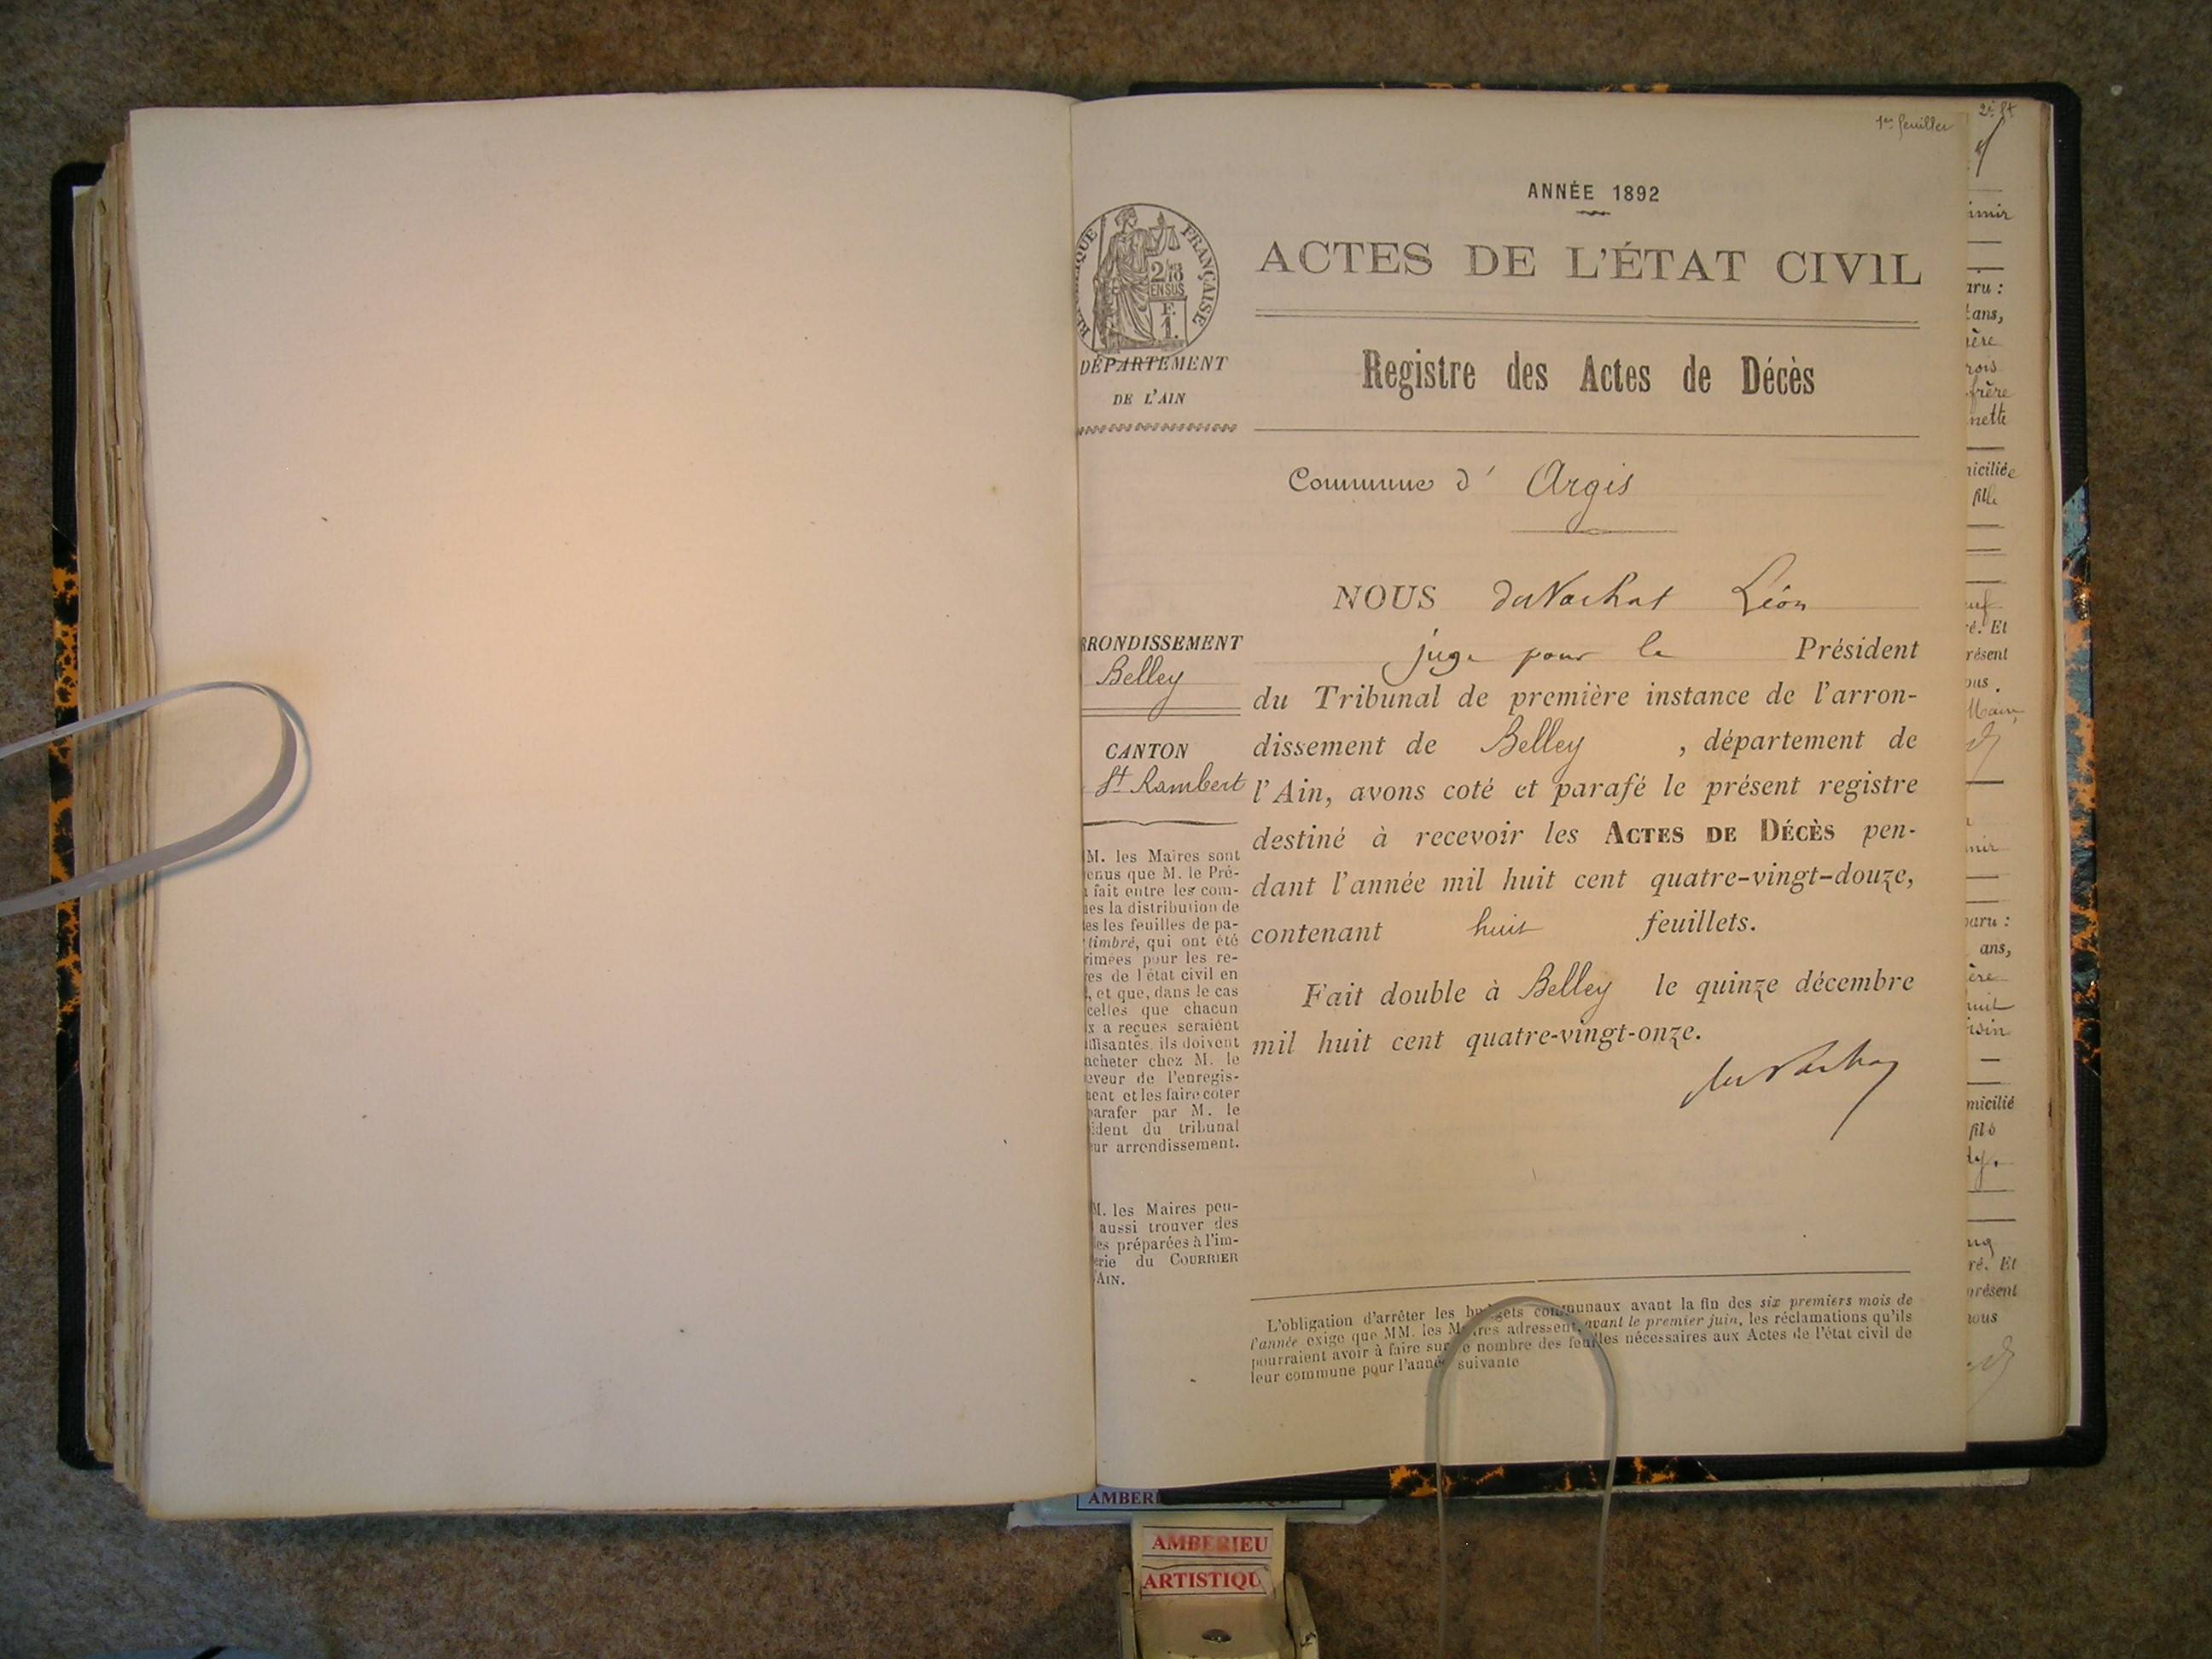 1er feuillet
ANNÉE 1892
ACTES DE L'ÉTAT CIVIL
FRANÇAISE
DÉPARTEMENT
DE L'AIN
Registre des Actes de Décès
Commune d' Argis
NOUS du Vachat Léon
juge pour le Président
du Tribunal de première instance de l'arron-
dissement de Belley , département de
l'Ain, avons coté et parafé le présent registre
destiné à recevoir les ACTES DE DÉCÈS pen-
dant l'année mil huit cent quatre-vingt-douze,
contenant huit feuillets.
Fait double à Belley le quinze décembre
mil huit cent quatre-vingt-onze.
du Vachat
RRONDISSEMENT
Belley
CANTON
St Rambert
M. les Maires sont
enus que M. le Pré-
fait entre les com-
es la distribution de
es les feuilles de pa-
timbré, qui ont été
rimées pour les re-
es de l'état civil en
, et que, dans le cas
celles que chacun
x a reçues seraient
ffisantes, ils doivent
acheter chez M. le
eveur de l'enregis-
ent et les faire coter
parafer par M. le
ident du tribunal
eur arrondissement.
M. les Maires peu-
aussi trouver des
es préparées à l'im-
erie du COURRIER
'AIN.
L'obligation d'arrêter les budgets communaux avant la fin des six premiers mois de
l'année exige que MM. les Maires adressent, avant le premier juin, les réclamations qu'ils
pourraient avoir à faire sur le nombre des feuilles nécessaires aux Actes de l'état civil de
leur commune pour l'année suivante
AMBERIEU
ARTISTIQU